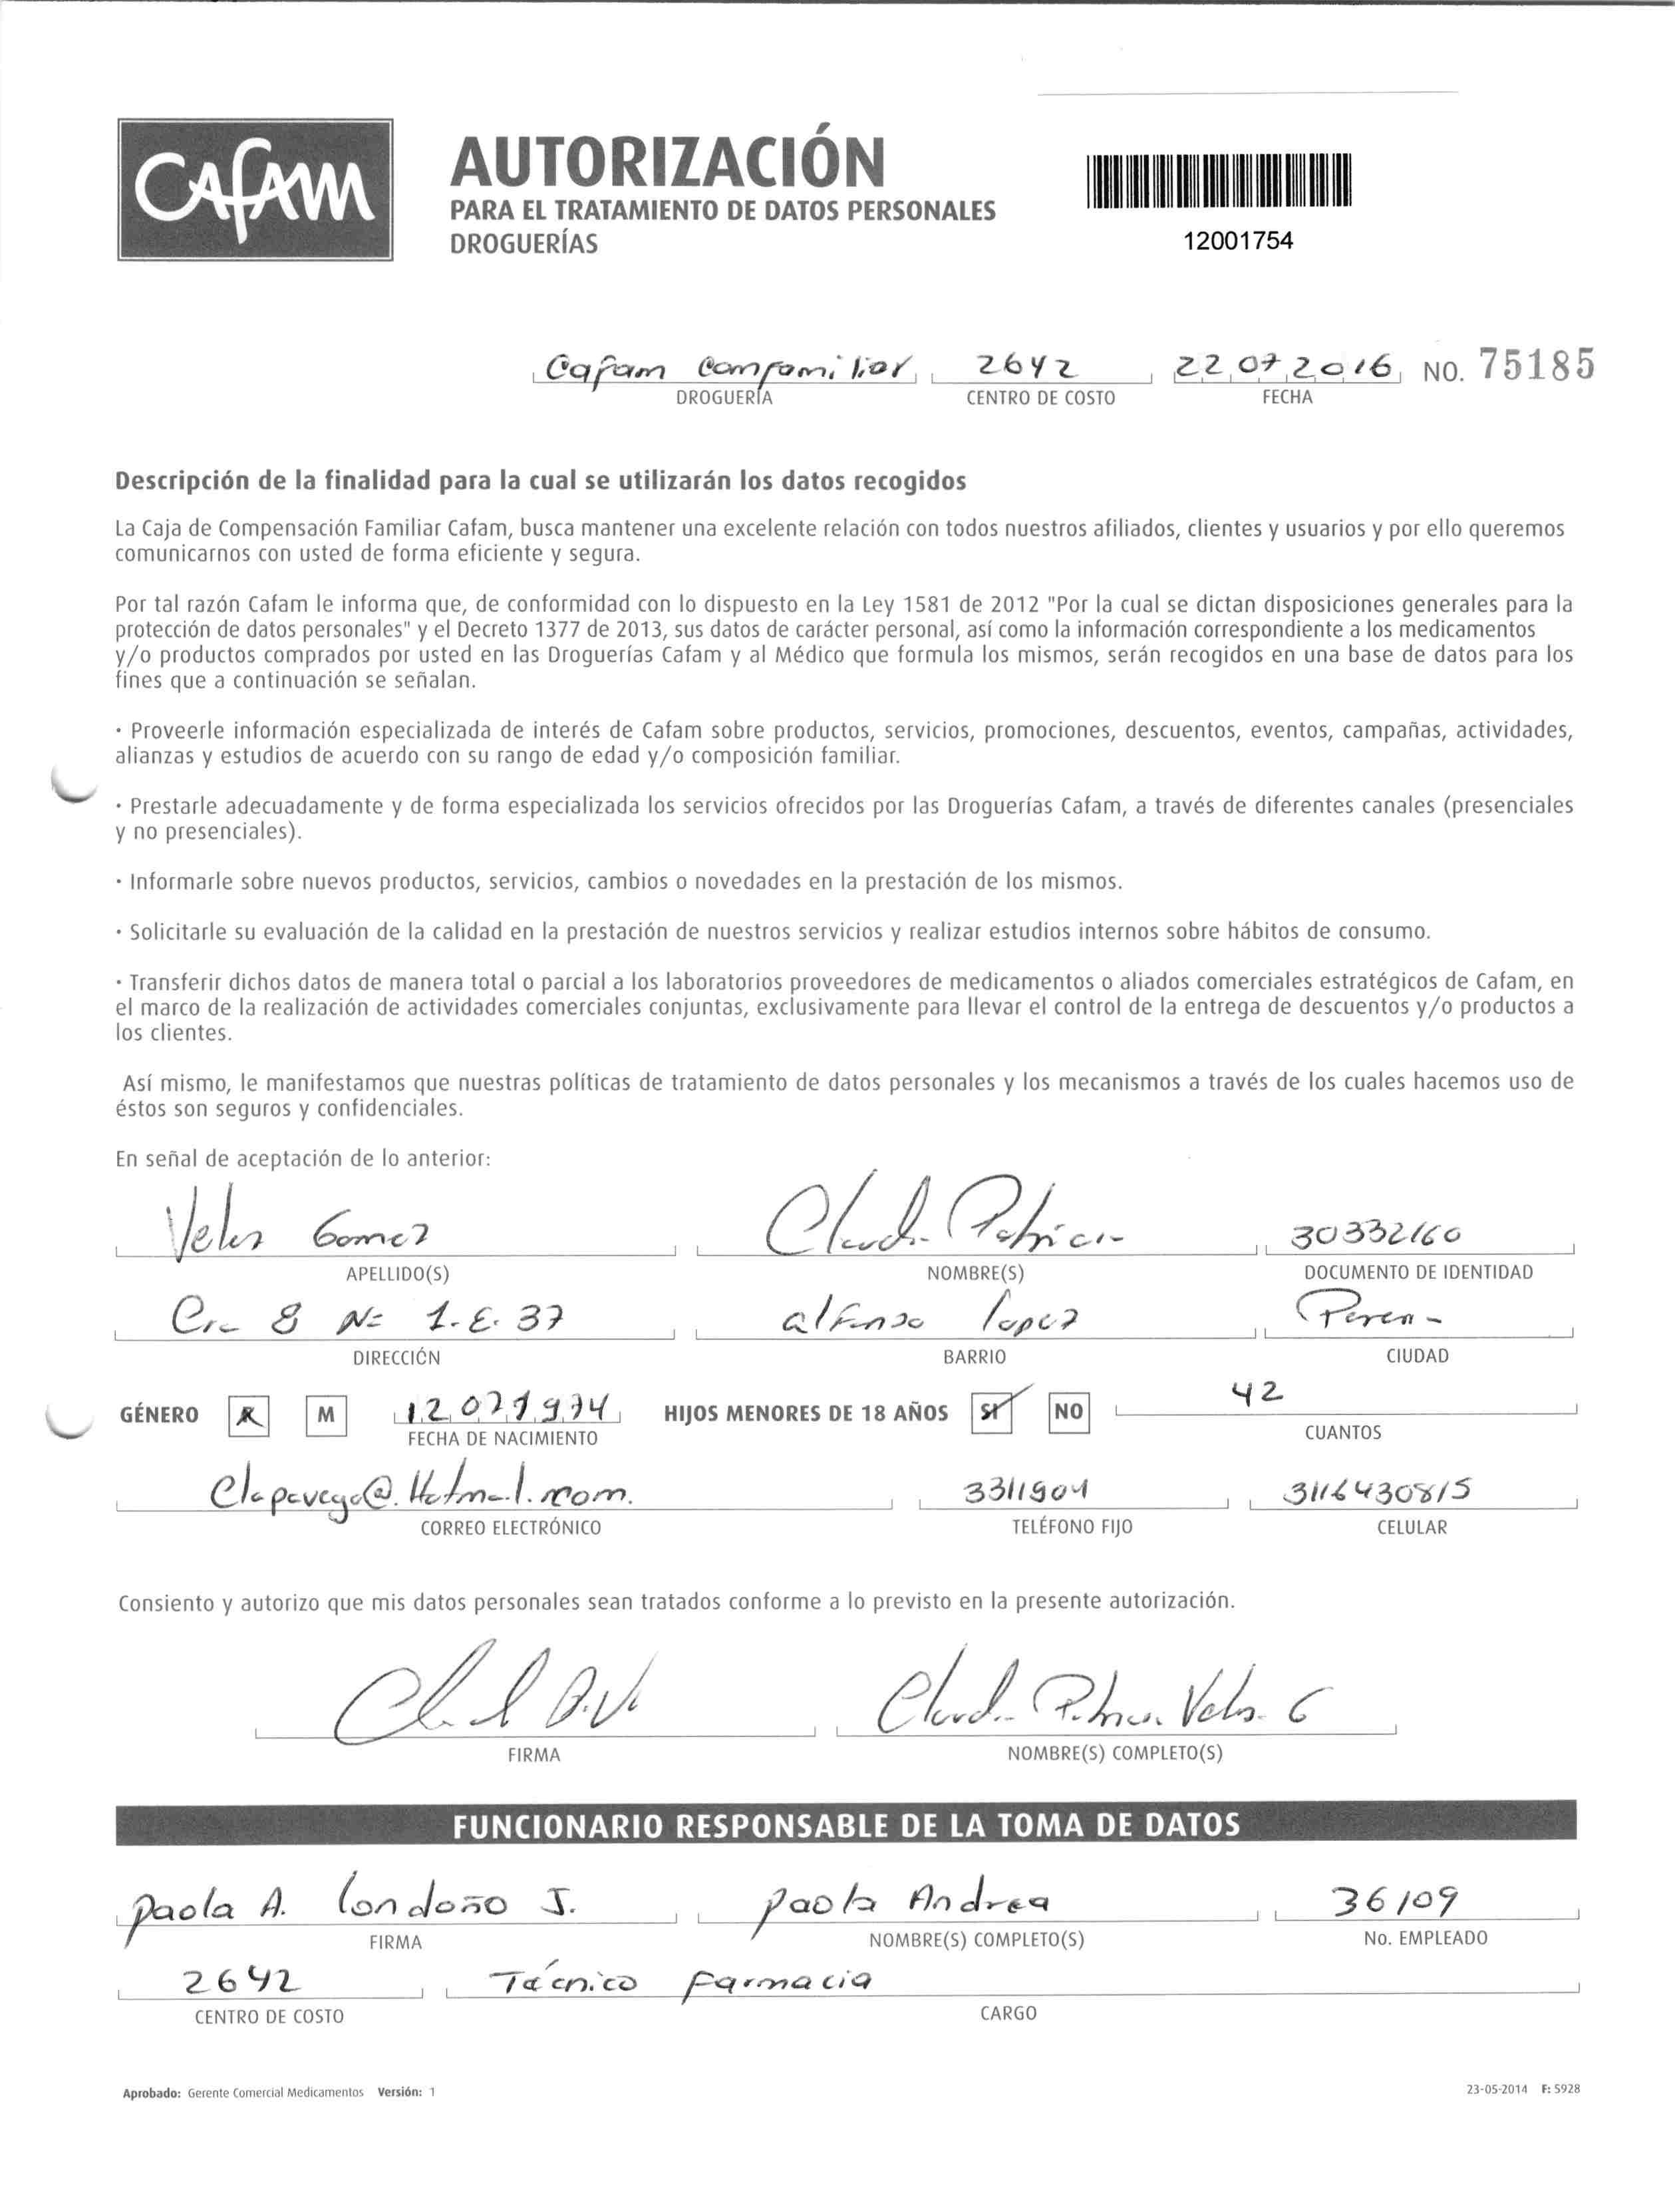 CAFAM
AUTORIZACIÓN
PARA EL TRATAMIENTO DE DATOS PERSONALES
DROGUERÍAS
12001754
Cafam Comfamiliar 2642 22 07 2016 NO. 75185
DROGUERÍA CENTRO DE COSTO FECHA
Descripción de la finalidad para la cual se utilizarán los datos recogidos
La Caja de Compensación Familiar Cafam, busca mantener una excelente relación con todos nuestros afiliados, clientes y usuarios y por ello queremos
comunicarnos con usted de forma eficiente y segura.
Por tal razón Cafam le informa que, de conformidad con lo dispuesto en la Ley 1581 de 2012 "Por la cual se dictan disposiciones generales para la
protección de datos personales" y el Decreto 1377 de 2013, sus datos de carácter personal, así como la información correspondiente a los medicamentos
y/o productos comprados por usted en las Droguerías Cafam y al Médico que formula los mismos, serán recogidos en una base de datos para los
fines que a continuación se señalan.
· Proveerle información especializada de interés de Cafam sobre productos, servicios, promociones, descuentos, eventos, campañas, actividades,
alianzas y estudios de acuerdo con su rango de edad y/o composición familiar.
· Prestarle adecuadamente y de forma especializada los servicios ofrecidos por las Droguerías Cafam, a través de diferentes canales (presenciales
y no presenciales).
· Informarle sobre nuevos productos, servicios, cambios o novedades en la prestación de los mismos.
· Solicitarle su evaluación de la calidad en la prestación de nuestros servicios y realizar estudios internos sobre hábitos de consumo.
· Transferir dichos datos de manera total o parcial a los laboratorios proveedores de medicamentos o aliados comerciales estratégicos de Cafam, en
el marco de la realización de actividades comerciales conjuntas, exclusivamente para llevar el control de la entrega de descuentos y/o productos a
los clientes.
Así mismo, le manifestamos que nuestras políticas de tratamiento de datos personales y los mecanismos a través de los cuales hacemos uso de
éstos son seguros y confidenciales.
En señal de aceptación de lo anterior:
Velez Gomez Claudia Patricia 30332160
APELLIDO(S) NOMBRE(S) DOCUMENTO DE IDENTIDAD
Cra 8 N= 1.E. 37 alfonso lopez
DIRECCIÓN BARRIO CIUDAD
GÉNERO M 12 07 1974 HIJOS MENORES DE 18 AÑOS SI NO 42
FECHA DE NACIMIENTO CUANTOS
3311904 3116430815
CORREO ELECTRÓNICO TELÉFONO FIJO CELULAR
Consiento y autorizo que mis datos personales sean tratados conforme a lo previsto en la presente autorización.
Claudia Patricia Velez G
FIRMA NOMBRE(S) COMPLETO(S)
FUNCIONARIO RESPONSABLE DE LA TOMA DE DATOS
Paola A. Londoño J. Paola Andrea 36109
FIRMA NOMBRE(S) COMPLETO(S) No. EMPLEADO
2642 Técnico Farmacia
CENTRO DE COSTO CARGO
Aprobado: Gerente Comercial Medicamentos Versión: 1 23-05-2014 F: 5928